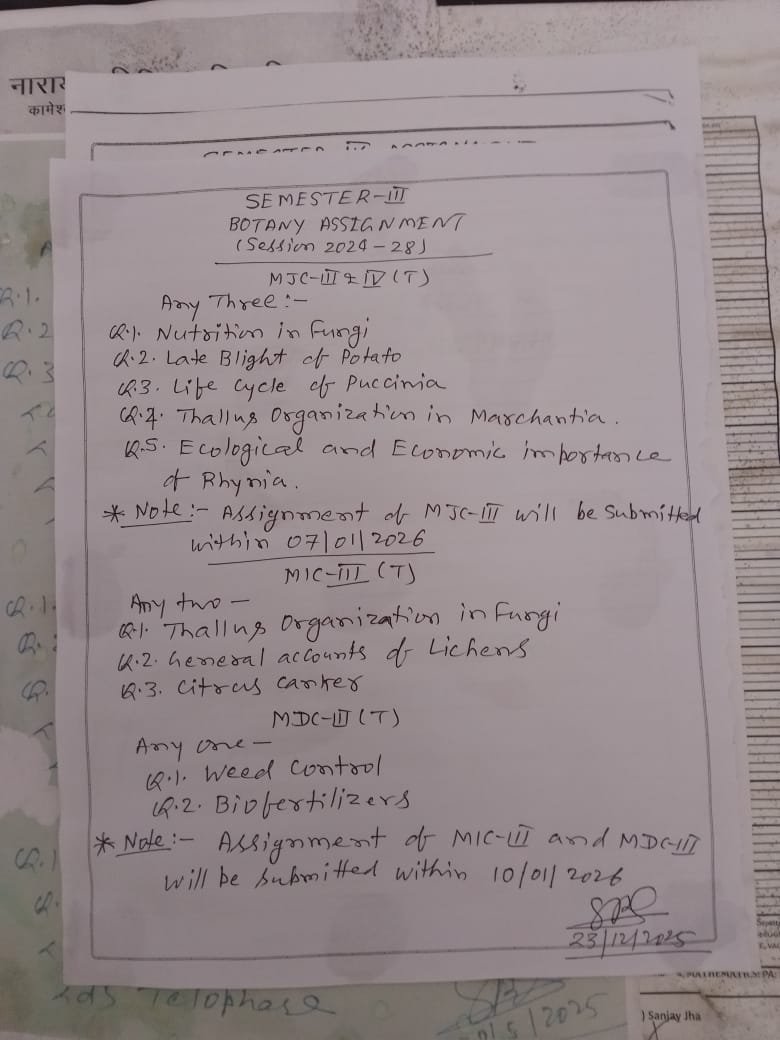 नारा
कामेश
SEMESTER-III
BOTANY ASSIGNMENT
(Session 2024-28)
MJC-III & IV (T)
Any Three:-
Q.1. Nutrition in Fungi
Q.2. Late Blight of Potato
Q.3. Life Cycle of Puccinia
Q.4. Thallus Organization in Marchantia.
Q.5. Ecological and Economic importance
of Rhynia.
* Note:- Assignment of MJC-III will be submitted
within 07/01/2026
MIC-III (T)
Any two-
Q.1. Thallus Organization in Fungi
Q.2. General accounts of Lichens
Q.3. Citrus canker
MDC-III (T)
Any one-
Q.1. Weed Control
Q.2. Biofertilizers
* Note:- Assignment of MIC-III and MDC-III
will be submitted within 10/01/2026
23/12/2025
Q.1.
Q.2
Q.3
Q.1.
Q.
Q.
Q.1
Q.
Telophase
/5/2025
MATHEMATICS: PA
) Sanjay Jha